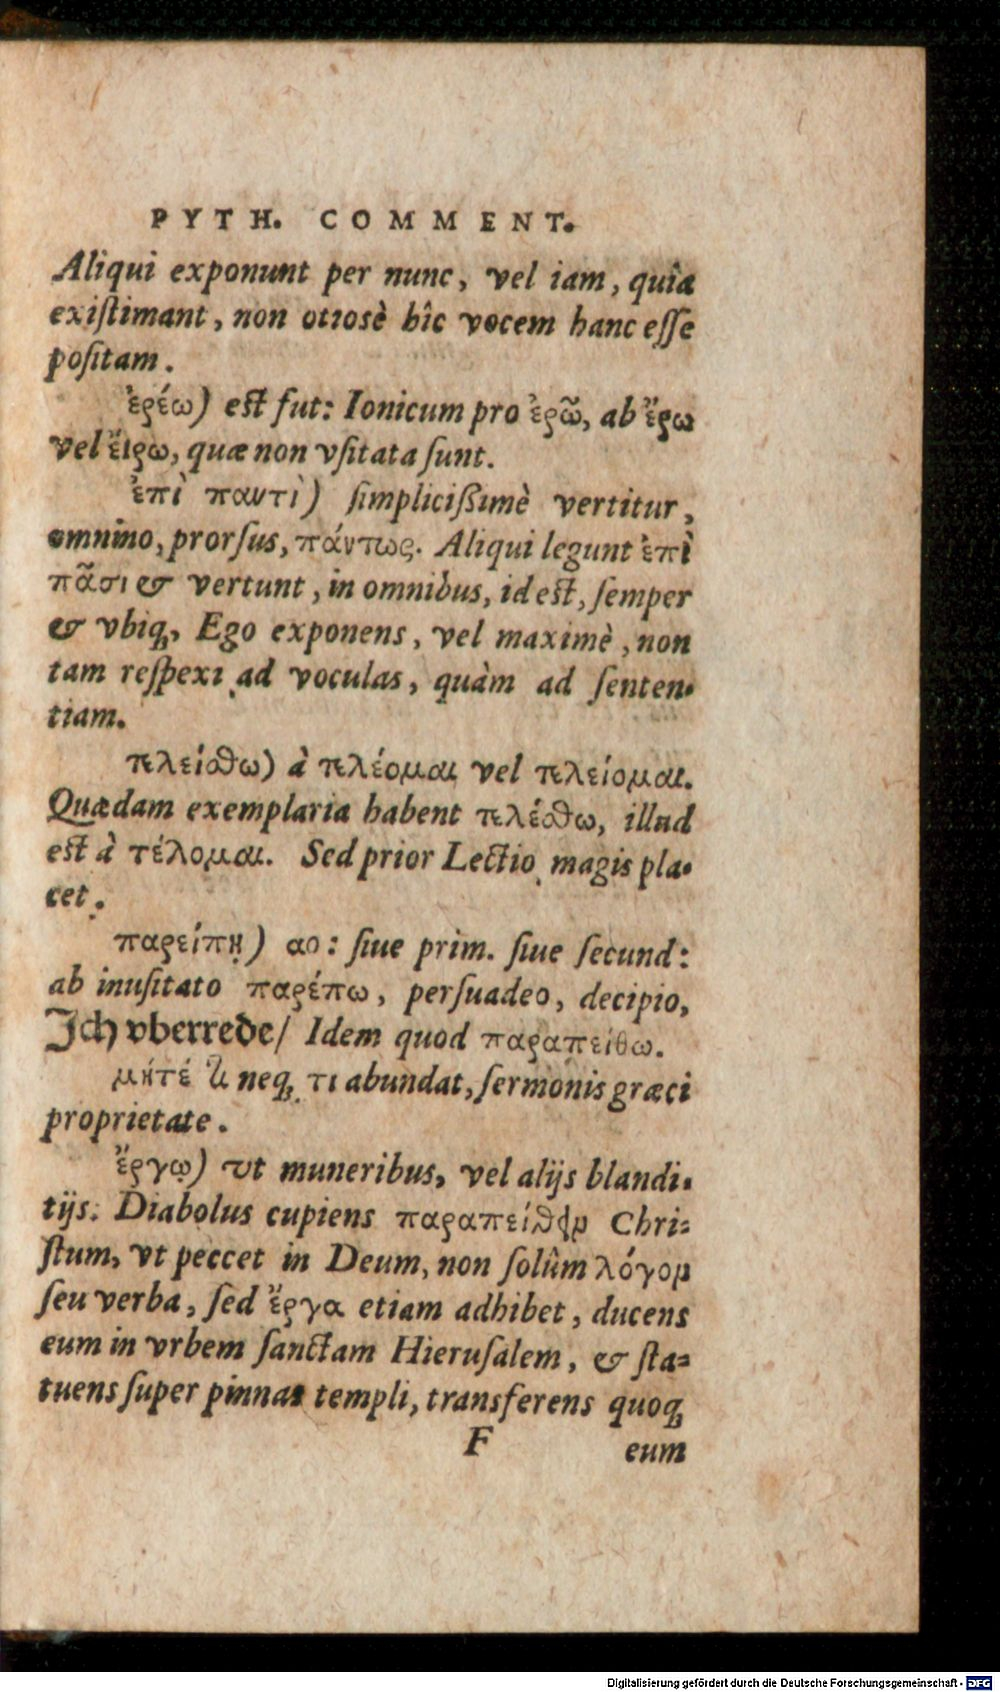 PYTH. COMMENT.
Aliqui exponunt per nunc, vel iam, quîa
existimant, non otiosè hîc vocem hanc esse
positam.
ἐρέω) est fut: Ionicum pro ἐρῶ, ab ἔρω
vel εἴρω, quæ non vsitata sunt.
ἐπὶ παντὶ) simplicißimè vertitur,
omnino, prorsus, πάντως. Aliqui legunt ἐπὶ
πᾶσι & vertunt, in omnibus, id est, semper
& vbiq́; Ego exponens, vel maximè, non
tam respexi ad voculas, quàm ad senten-
tiam.
πλείσθω) à πλέομαι vel πλείομαι.
Quædam exemplaria habent πλέσθω, illud
est à τέλομαι. Sed prior Lectio magis pla-
cet.
παρείπῃ) ao: siue prim. siue secund:
ab inusitato παρέπω, persuadeo, decipio,
Ich vberrede/ Idem quod παραπείθω.
μήτέ τι neq; τι abundat, sermonis græci
proprietate.
ἔργῳ) vt muneribus, vel alijs blandi-
tijs. Diabolus cupiens παραπείθειν Chri-
stum, vt peccet in Deum, non solûm λόγον
seu verba, sed ἔργα etiam adhibet, ducens
eum in vrbem sanctam Hierusalem, & sta-
tuens super pinnas templi, transferens quoq;
F eum
Digitalisierung gefördert durch die Deutsche Forschungsgemeinschaft - DFG